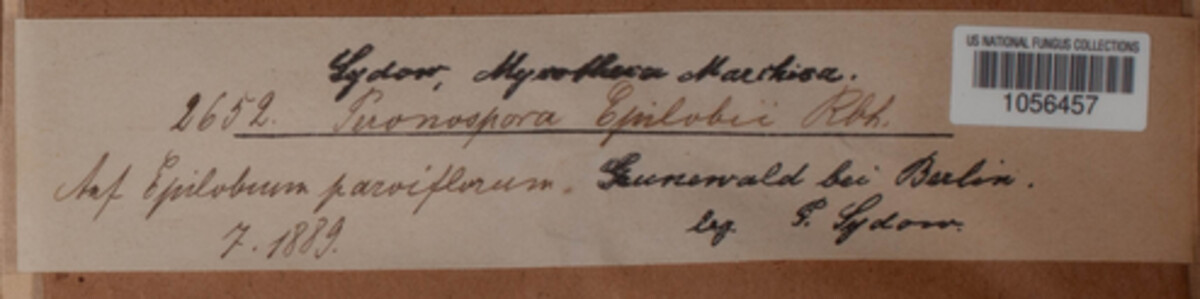 Sydow, Mycotheca Marchica.
US NATIONAL FUNGUS COLLECTIONS
1056457
2652. Peronospora Epilobii Rbh.
Auf Epilobium parviflorum. Grunewald bei Berlin.
7. 1889.
leg. P. Sydow.